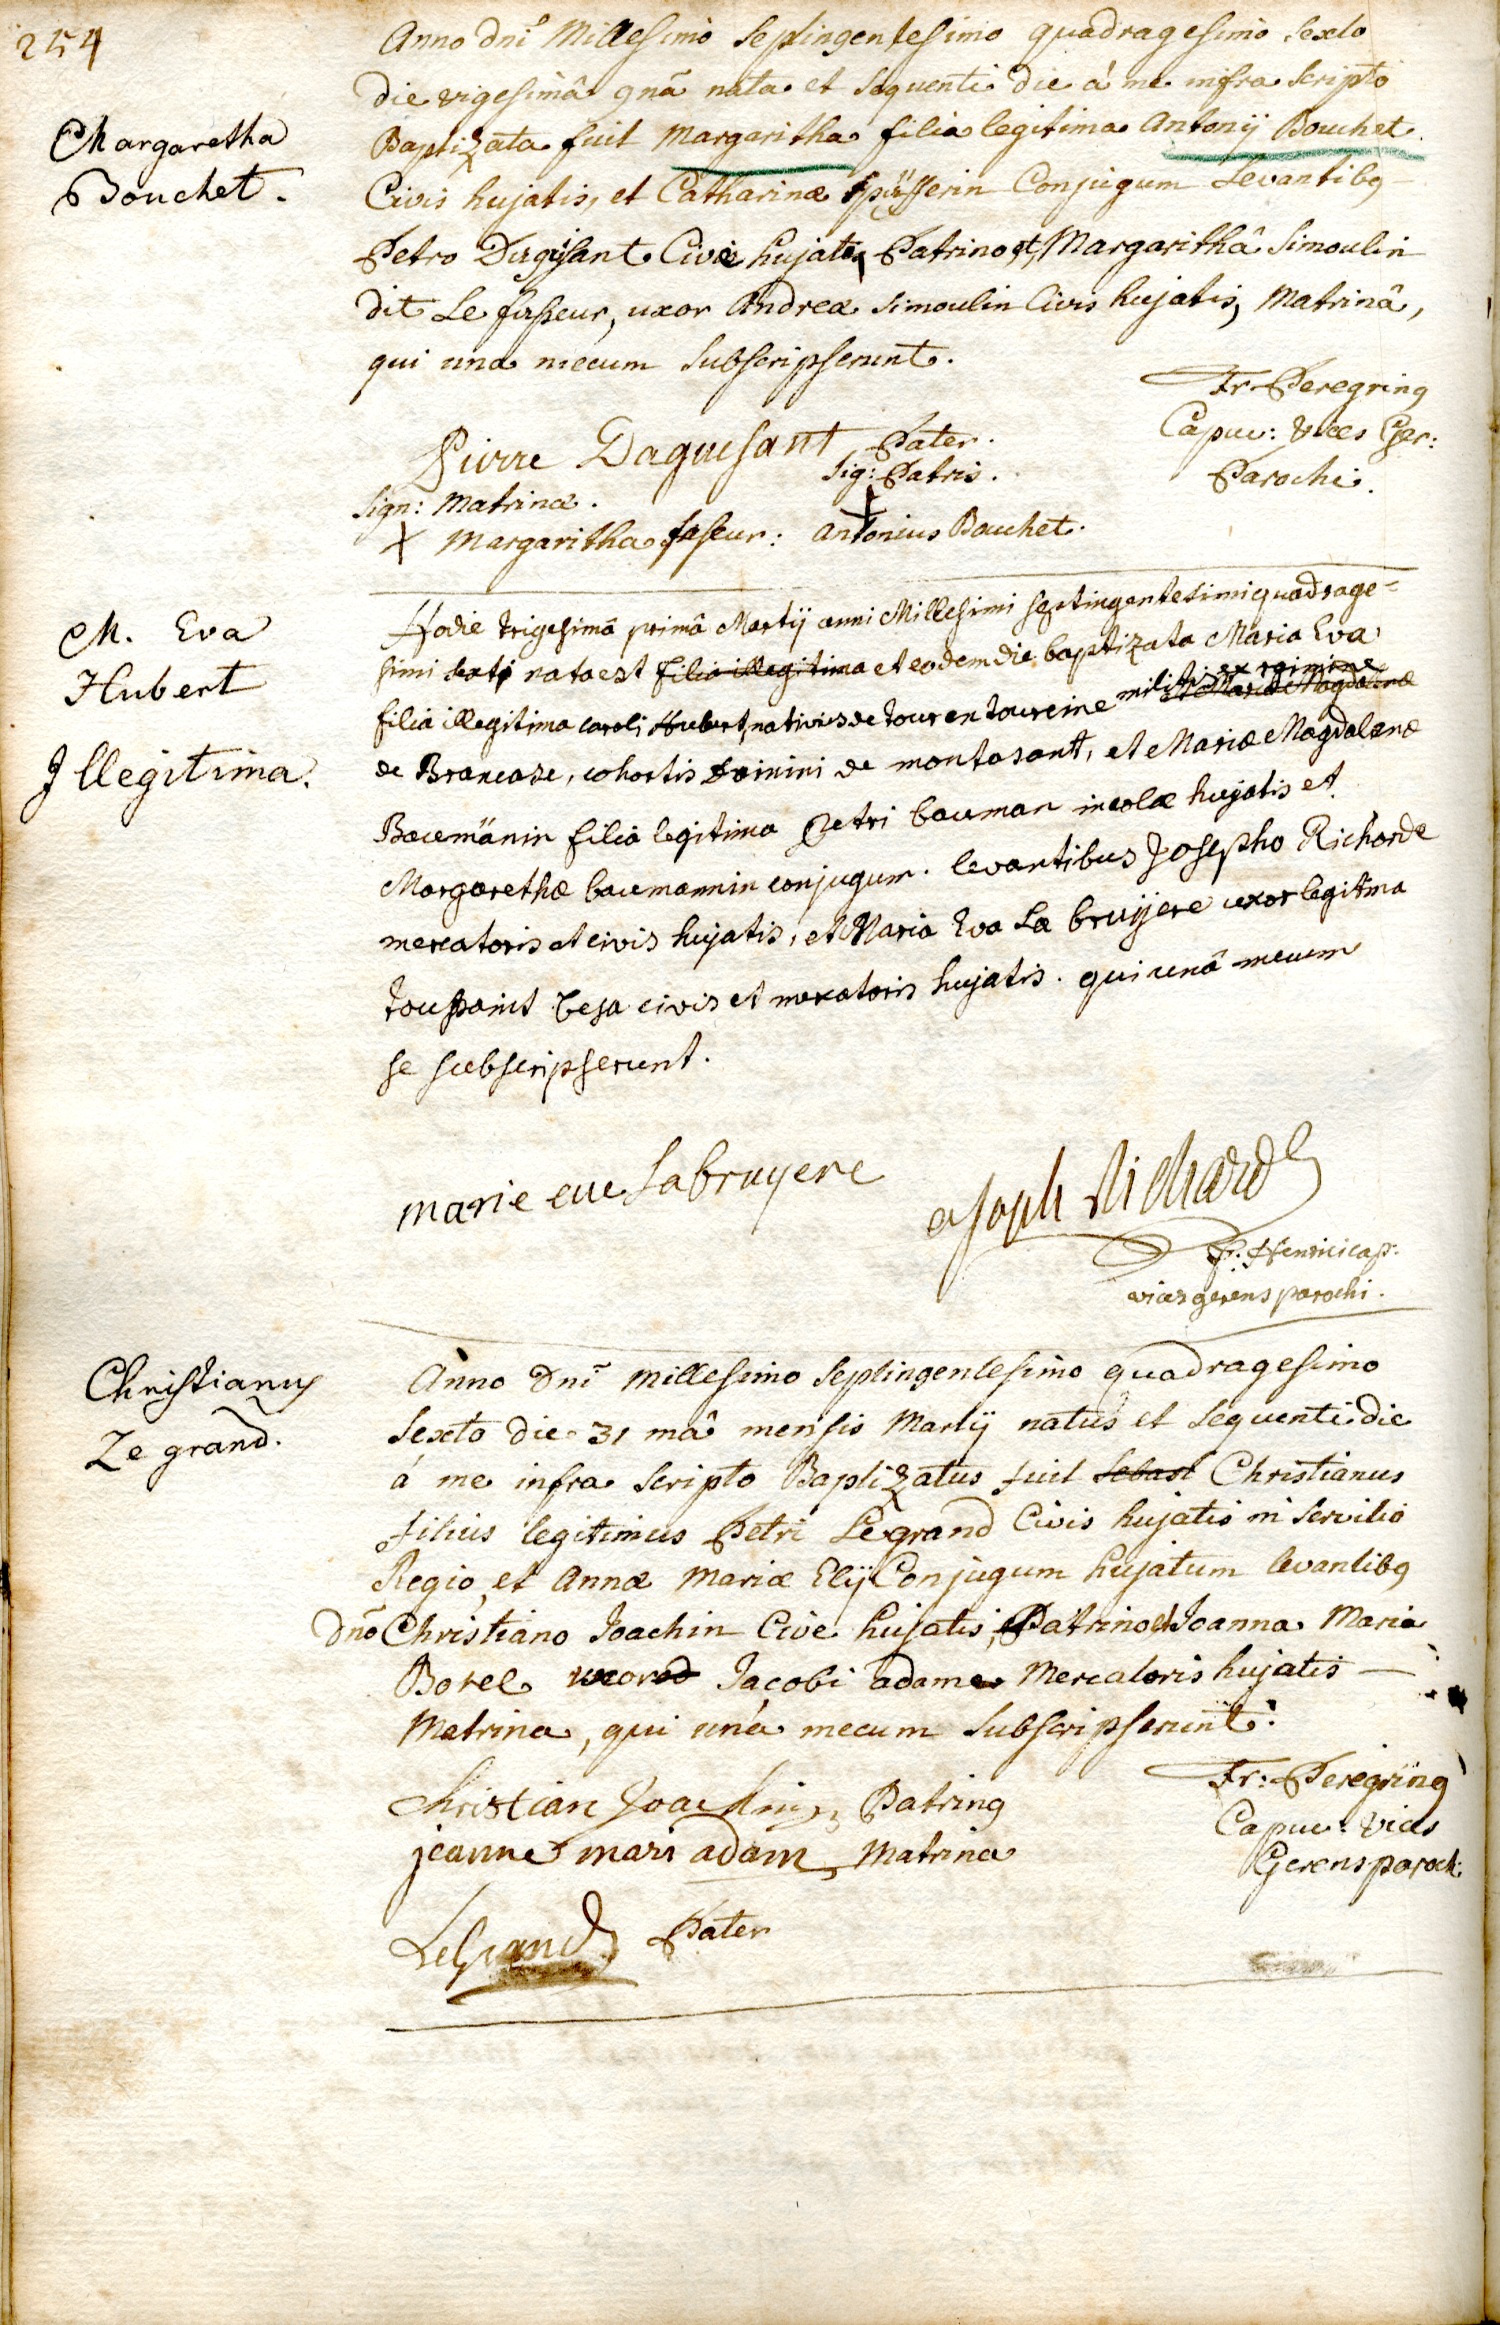 254
Anno dni Millesimo Septingentesimo quadragesimo sexto
die vigesimâ qnâ nata et sequenti die á me infra scripto
Margaretha
Bouchet.
Baptizata fuit Margaritha filia legitima Antonij Bouchet.
Civis hujatis, et Catharinæ Conjugum Levantibq
Petro Civis hujatis Patrino et Margarithâ Simoulin
dit Le fasseur, uxor Andreæ Simoulin Civis hujatis, Matrinâ,
qui una mecum Subscripserunt.
Fr. Peregrinq
Capuc: Vices Ger:
Parochi.
Pierre Daguesant Pater.
Sig: Patris.
Sign: Matrinæ.
Margaritha faseur: Antonius Bouchet.
M. Eva
Hubert
Illegitima.
Hodie trigesimâ primâ Martij anni Millesimi septingentesimi quadrage-
simi sexti nata est filia illegitima et eodem die baptizata Maria Eva
filia illegitima caroli Hubert, nativus de tour en toureine militis ex regimine et Mariæ Magdalenæ
de Brancase, cohortis Domini de montasant, et Mariæ Magdalenæ
Baumänin filia legitima Petri bauman incolæ hujatis et
Margarethæ baumannin conjugum. levantibus Josepho Richarde
mercatoris et civis hujatis, et Maria Eva La bruyere uxor legitma
toussaint besa civis et mercatoris hujatis. qui unâ mecum
se subscripserunt.
marie eve Labruyere
Joseph Richard
fr. Henrici cap.
vices gerens parochi.
Christianus
Le grand.
Anno Dni Millesimo Septingentesimo quadragesimo
Sexto die 31 mâ mensis Martij natus et sequenti die
á me infra scripto Baptizatus fuit Sebast Christianus
filius legitimus Petri Legrand Civis hujatis in servitio
Regio, et Annæ Mariæ Elij Conjugum hujatum levantibq
Dno Christiano Joachin Cive hujatis, Patrino et Joanna Maria
Borel uxored Jacobi adame Mercatoris hujatis —
Matrina, qui una mecum Subscripserunt.
Fr: Peregrinq
Capuc: vices
Gerens paroch:
Christian Joachim Patrinq
jeanne mari adam Matrina
LeGrand Pater